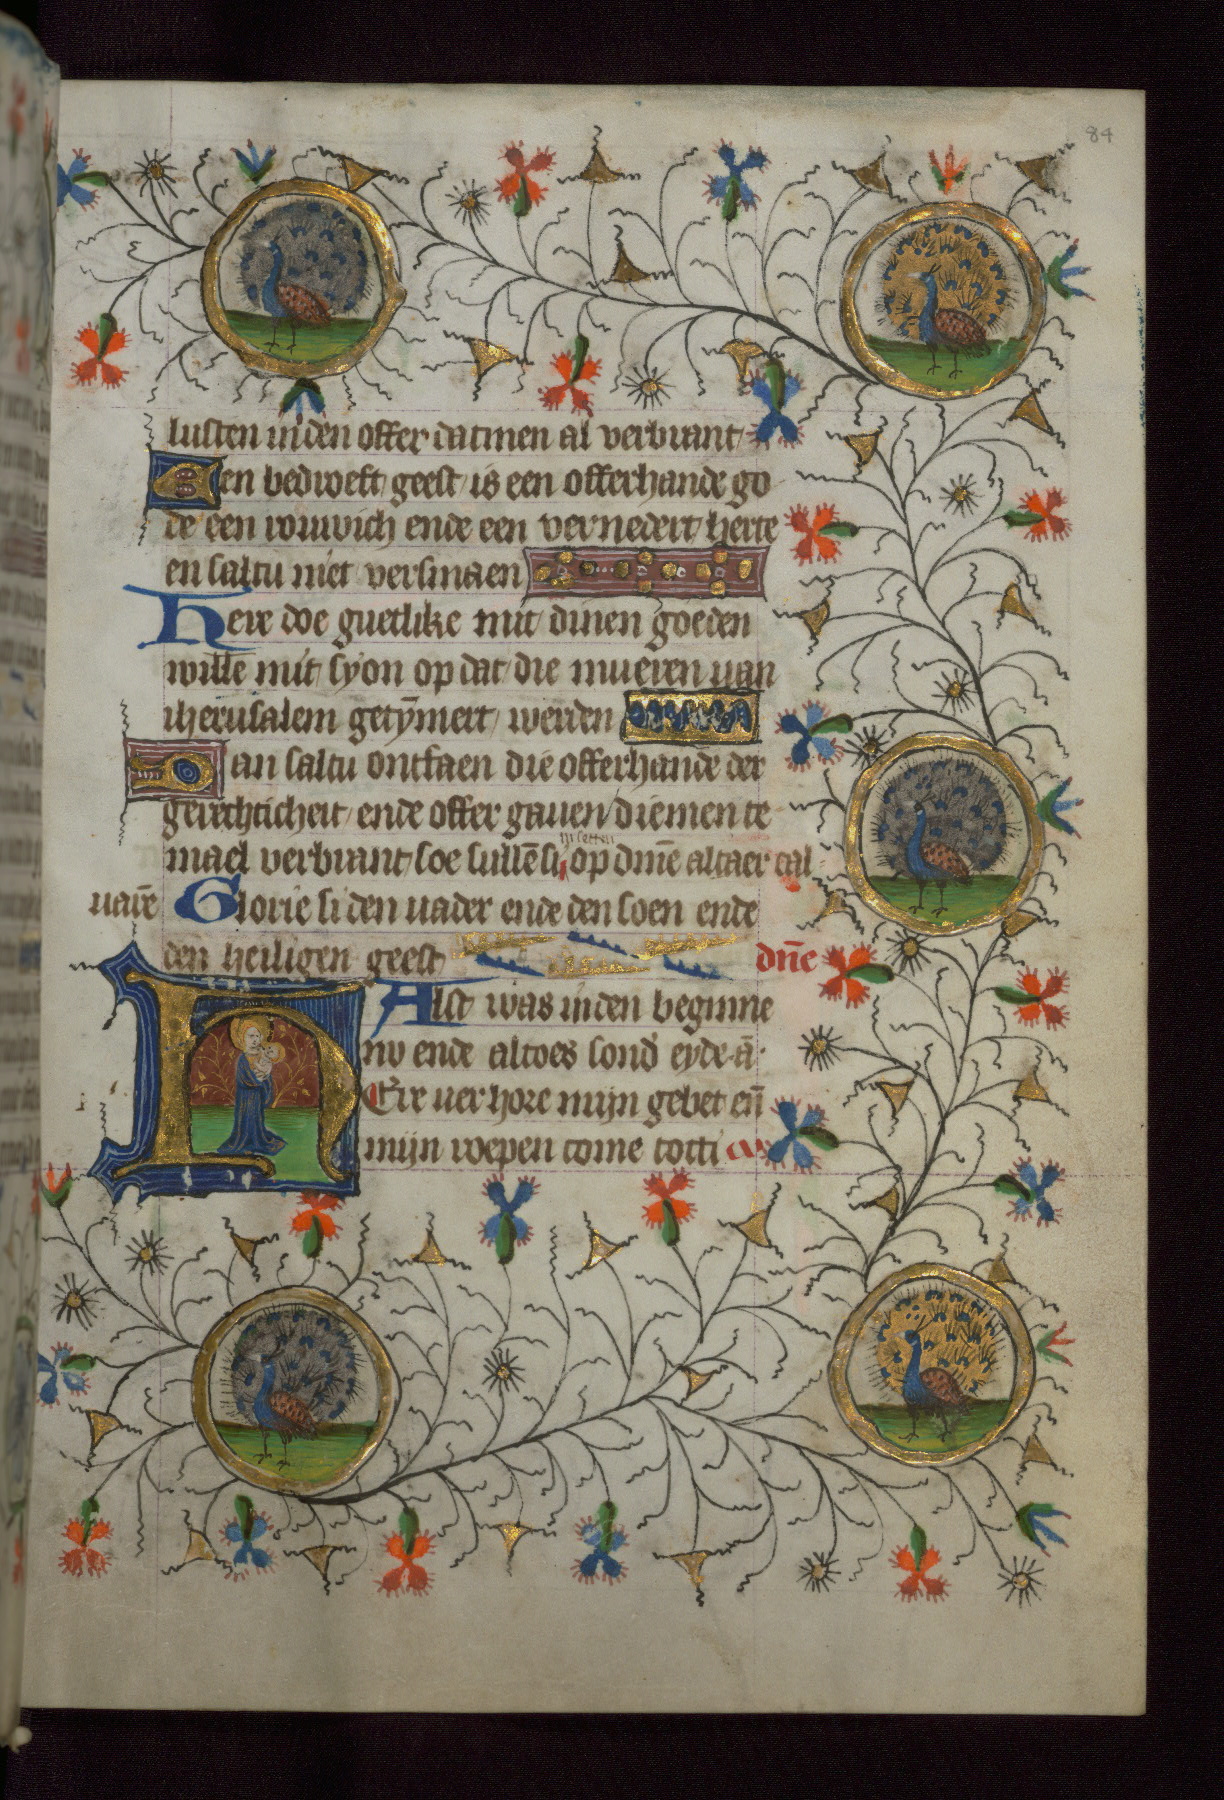 84
lusten inden offer datmen al verbrant
Een bedroeft geest is een offerhande go
de een rouwich ende een vernedert herte
en saltu niet versmaen
Here doe guetlike mit dinen goeden
wille mit syon op dat die mueren uan
iherusalem getȳmert werden
Dan saltu ontfaen die offerhande der
gerechticheit ende offer gauen diemen te
mael verbrant soe sullē si op dinē altaer cal
uarē Glorie si den uader ende den soen ende
den heiligen geest dn̄e
Alst was inden beginne
nv ende altoes sond' eyde ā
HEre uerhore mijn gebet en̄
mijn roepen come totti